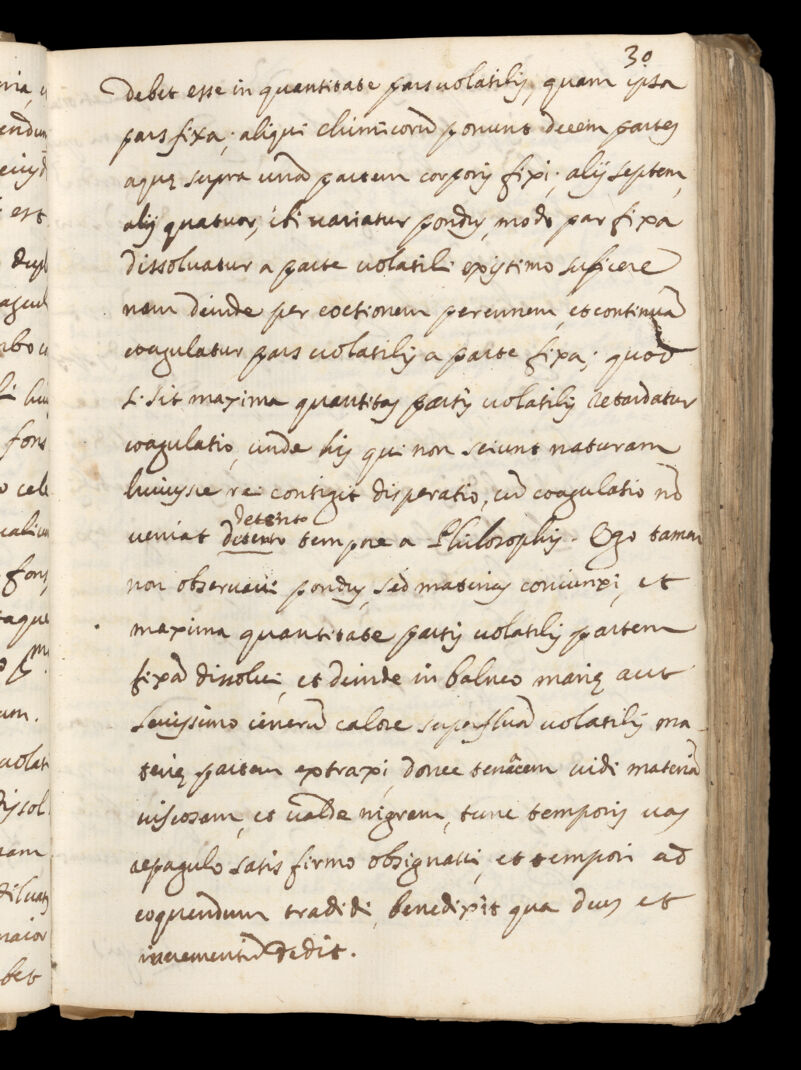 30
debet esse in quantitate pars volatilis, quam ipsa
pars fixa; aliqui chimicorũ ponunt decem partes
aquę supra unã partem corporis fixi; alij septem,
alij quatuor, ibi variatur pondus, modo pars fixa
dissolvatur a parte volatili existimo sufficere
nam deinde per coctionem perennem, et continuã
coagulatur pars volatilis a parte fixa; quod
si sit maxima quantitas partis volatilis retardatur
coagulatio, unde his qui non sciunt naturam
huiusce rei contigit disperatio, cũ coagulatio nõ
detento
veniat detento tempore a Philosophis. Ego tamen
non observavi pondus, sed materias coniunxi, et
maxima quantitate partis volatilis partem
fixã dissolvi, et deinde in balneo marię aut
levissimo cinerũ calore superfluã volatilis ma
terię partem extraxi, donec tenacem vidi materiã
viscosam, et valde nigram, tunc temporis vas
repagulo satis firmo obsignavi, et tempori ad
coquendum tradidi, benedixit qua deus et
incrementũ dedit.